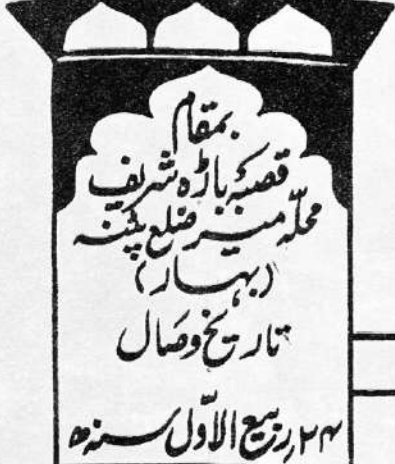 بمقام
قصبہ باڑہ شریف
محلہ میر ضلع پٹنہ
(بہار)
تاریخ وصال
۲۴ ربیع الاوّل سنہ ھ